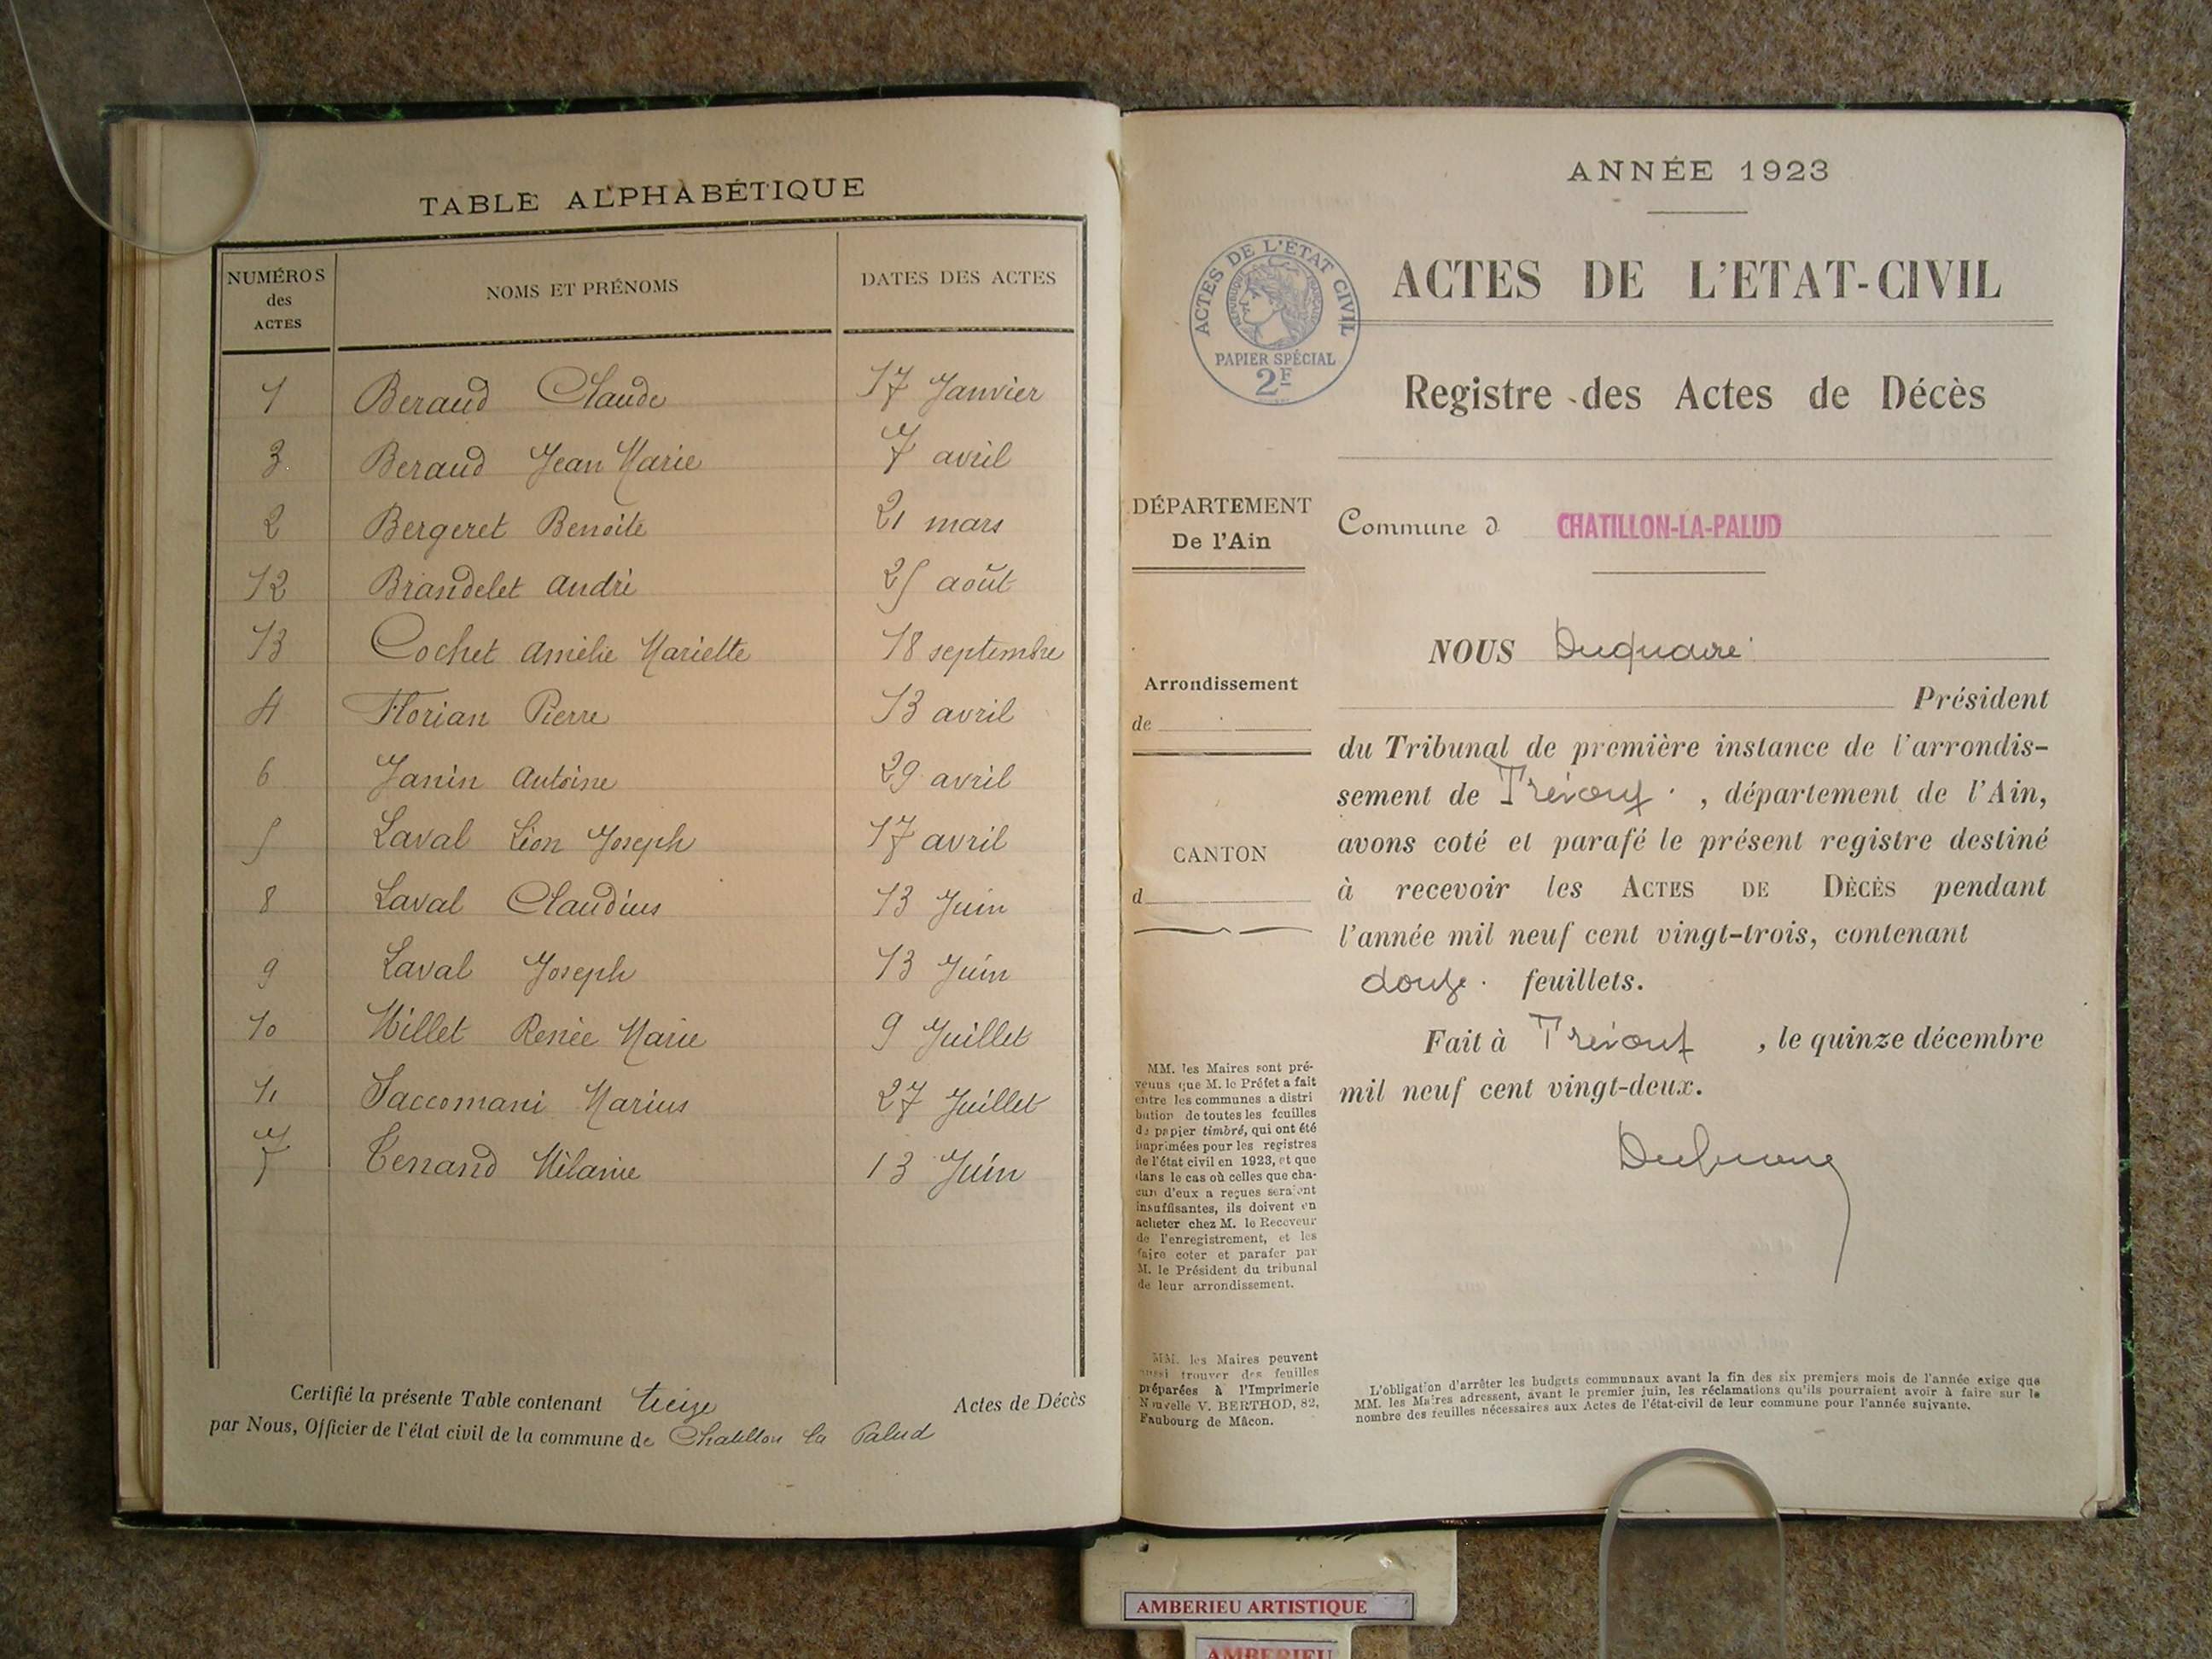 TABLE ALPHABÉTIQUE
NUMÉROS des ACTES NOMS ET PRÉNOMS DATES DES ACTES
1 Beraud Claude 17 Janvier
3 Beraud Jean Marie 7 avril
2 Bergeret Benoite 21 mars
12 Brandelet andré 25 août
13 Cochet amélie Mariette 18 septembre
4 Florian Pierre 13 avril
6 Janin Antoine 29 avril
5 Laval Léon Joseph 17 avril
8 Laval Claudius 13 Juin
9 Laval Joseph 13 Juin
10 Millet Renée Marie 9 Juillet
11 Saccomani Marius 27 Juillet
7 Tenand Mélanie 13 Juin
Certifié la présente Table contenant treize Actes de Décès
par Nous, Officier de l'état civil de la commune de Chatillon la Palud
ANNÉE 1923
ACTES DE L'ÉTAT CIVIL
PAPIER SPÉCIAL
2F
ACTES DE L'ETAT-CIVIL
Registre des Actes de Décès
DÉPARTEMENT
De l'Ain
Commune d CHATILLON-LA-PALUD
Arrondissement
de
CANTON
d
NOUS Duquaire
Président
du Tribunal de première instance de l'arrondis-
sement de Trévoux, département de l'Ain,
avons coté et parafé le présent registre destiné
à recevoir les ACTES DE DÉCÈS pendant
l'année mil neuf cent vingt-trois, contenant
douze feuillets.
Fait à Trévoux, le quinze décembre
mil neuf cent vingt-deux.
MM. les Maires sont pré-
venus que M. le Préfet a fait
entre les communes a distri
bution de toutes les feuilles
de papier timbré, qui ont été
imprimées pour les registres
de l'état civil en 1923, et que
dans le cas où celles que cha-
cun d'eux a reçues seraient
insuffisantes, ils doivent en
acheter chez M. le Receveur
de l'enregistrement, et les
faire coter et parafer par
M. le Président du tribunal
de leur arrondissement.
MM. les Maires peuvent
aussi trouver des feuilles
préparées à l'Imprimerie
Nouvelle V. BERTHOD, 82,
Faubourg de Mâcon.
L'obligation d'arrêter les budgets communaux avant la fin des six premiers mois de l'année exige que
MM. les Maires adressent, avant le premier juin, les réclamations qu'ils pourraient avoir à faire sur le
nombre des feuilles nécessaires aux Actes de l'état-civil de leur commune pour l'année suivante.
AMBERIEU ARTISTIQUE
AMBERIEU